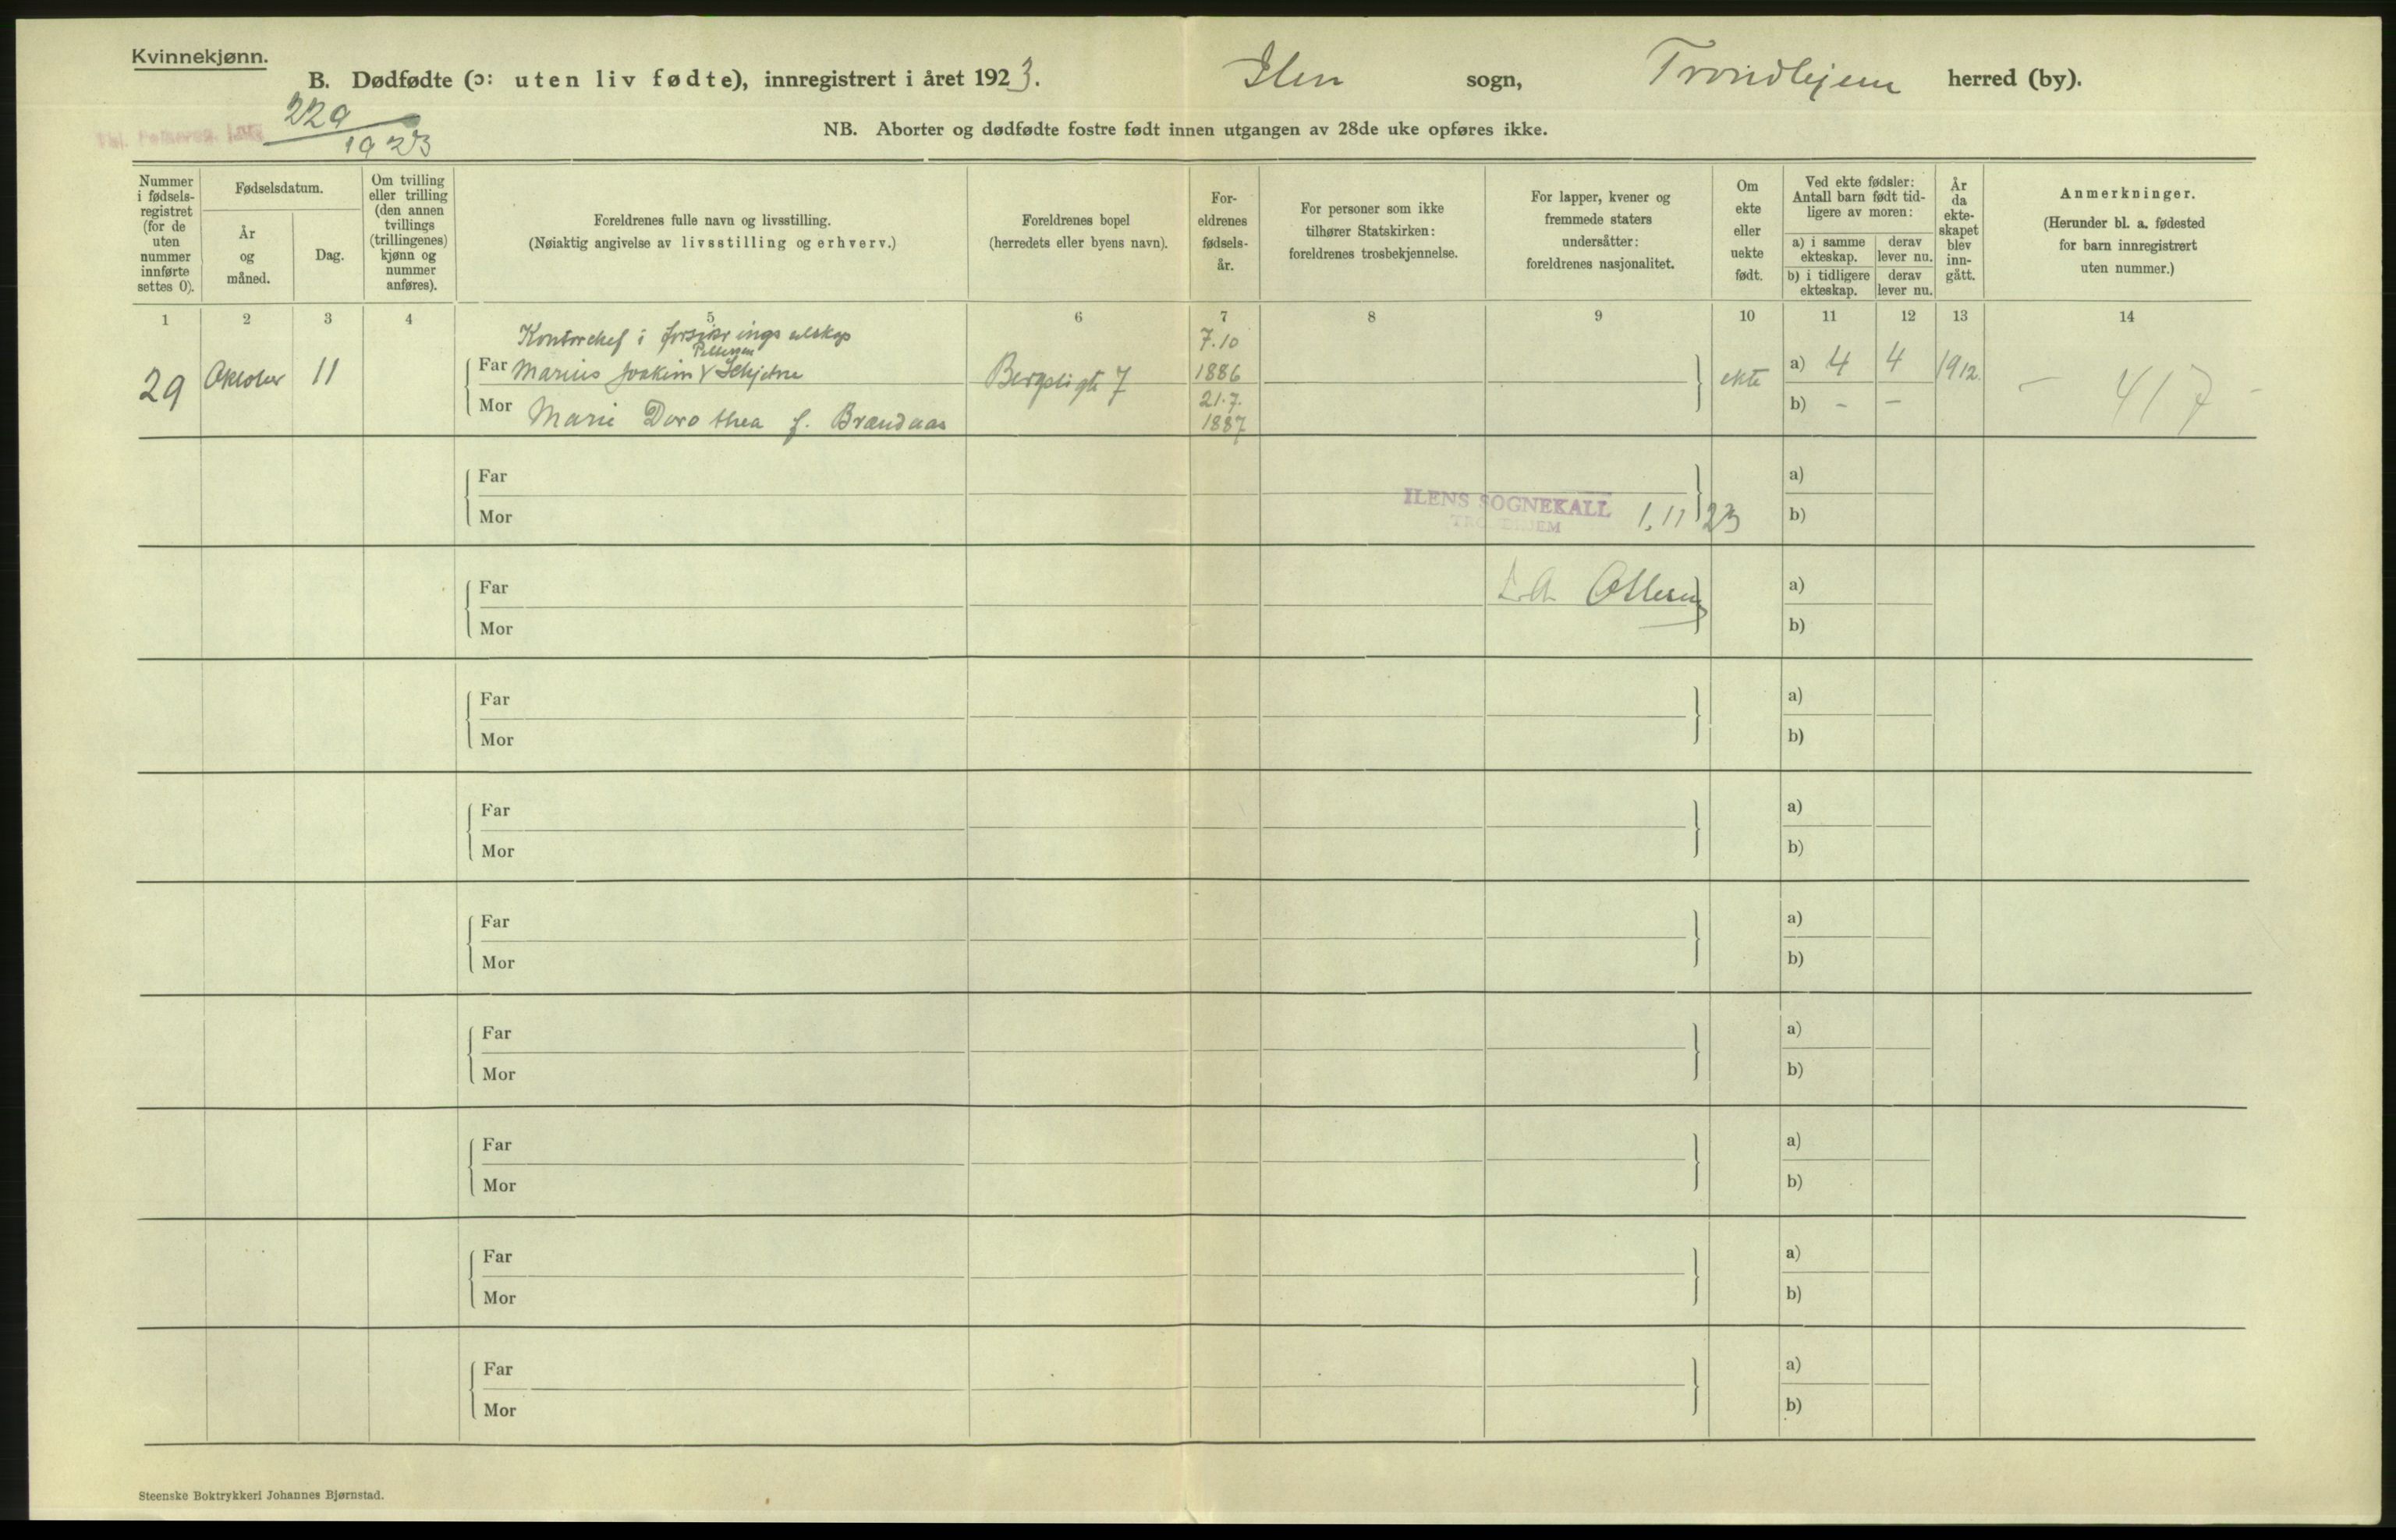 Kvinnekjønn.
B. Dødfødte (ɔ: uten liv fødte), innregistrert i året 1923. Ilen sogn, Trondhjem herred (by).
229
1923
NB. Aborter og dødfødte fostre født innen utgangen av 28de uke opføres ikke.
Nummer i fødsels-registret (for de uten nummer innførte settes 0).
Fødselsdatum.
År og måned.
Dag.
Om tvilling eller trilling (den annen tvillings (trillingenes) kjønn og nummer anføres).
Foreldrenes fulle navn og livsstilling.
(Nøiaktig angivelse av livsstilling og erhverv.)
Foreldrenes bopel
(herredets eller byens navn).
For-eldrenes fødsels-år.
For personer som ikke tilhører Statskirken: foreldrenes trosbekjennelse.
For lapper, kvener og fremmede staters undersåtter: foreldrenes nasjonalitet.
Om ekte eller uekte født.
Ved ekte fødsler: Antall barn født tid-ligere av moren:
a) i samme ekteskap.
derav lever nu.
b) i tidligere ekteskap.
derav lever nu.
År da ekte-skapet blev inn-gått.
Anmerkninger.
(Herunder bl. a. fødested for barn innregistrert uten nummer.)
1 2 3 4 5 6 7 8 9 10 11 12 13 14
Kontorchef i forsikringsselskap 7.10
Pettersen
29 Oktober 11 Far Marius Joakim Schjetne Bergsligt 7 1886 ekte a) 4 4 1912. - 417 -
Mor Marie Dorothea f. Brandaas 21.7. 1887 b) - -
Far a)
ILENS SOGNEKALL 1.11 23
Mor b)
Far a)
Mor b)
Far a)
Mor b)
Far a)
Mor b)
Far a)
Mor b)
Far a)
Mor b)
Far a)
Mor b)
Far a)
Mor b)
Far a)
Mor b)
Steenske Boktrykkeri Johannes Bjørnstad.